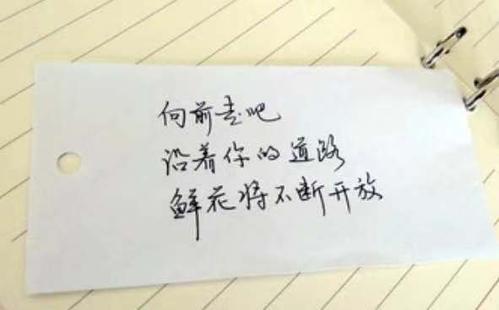 向前去吧
沿着你的道路
鲜花将不断开放